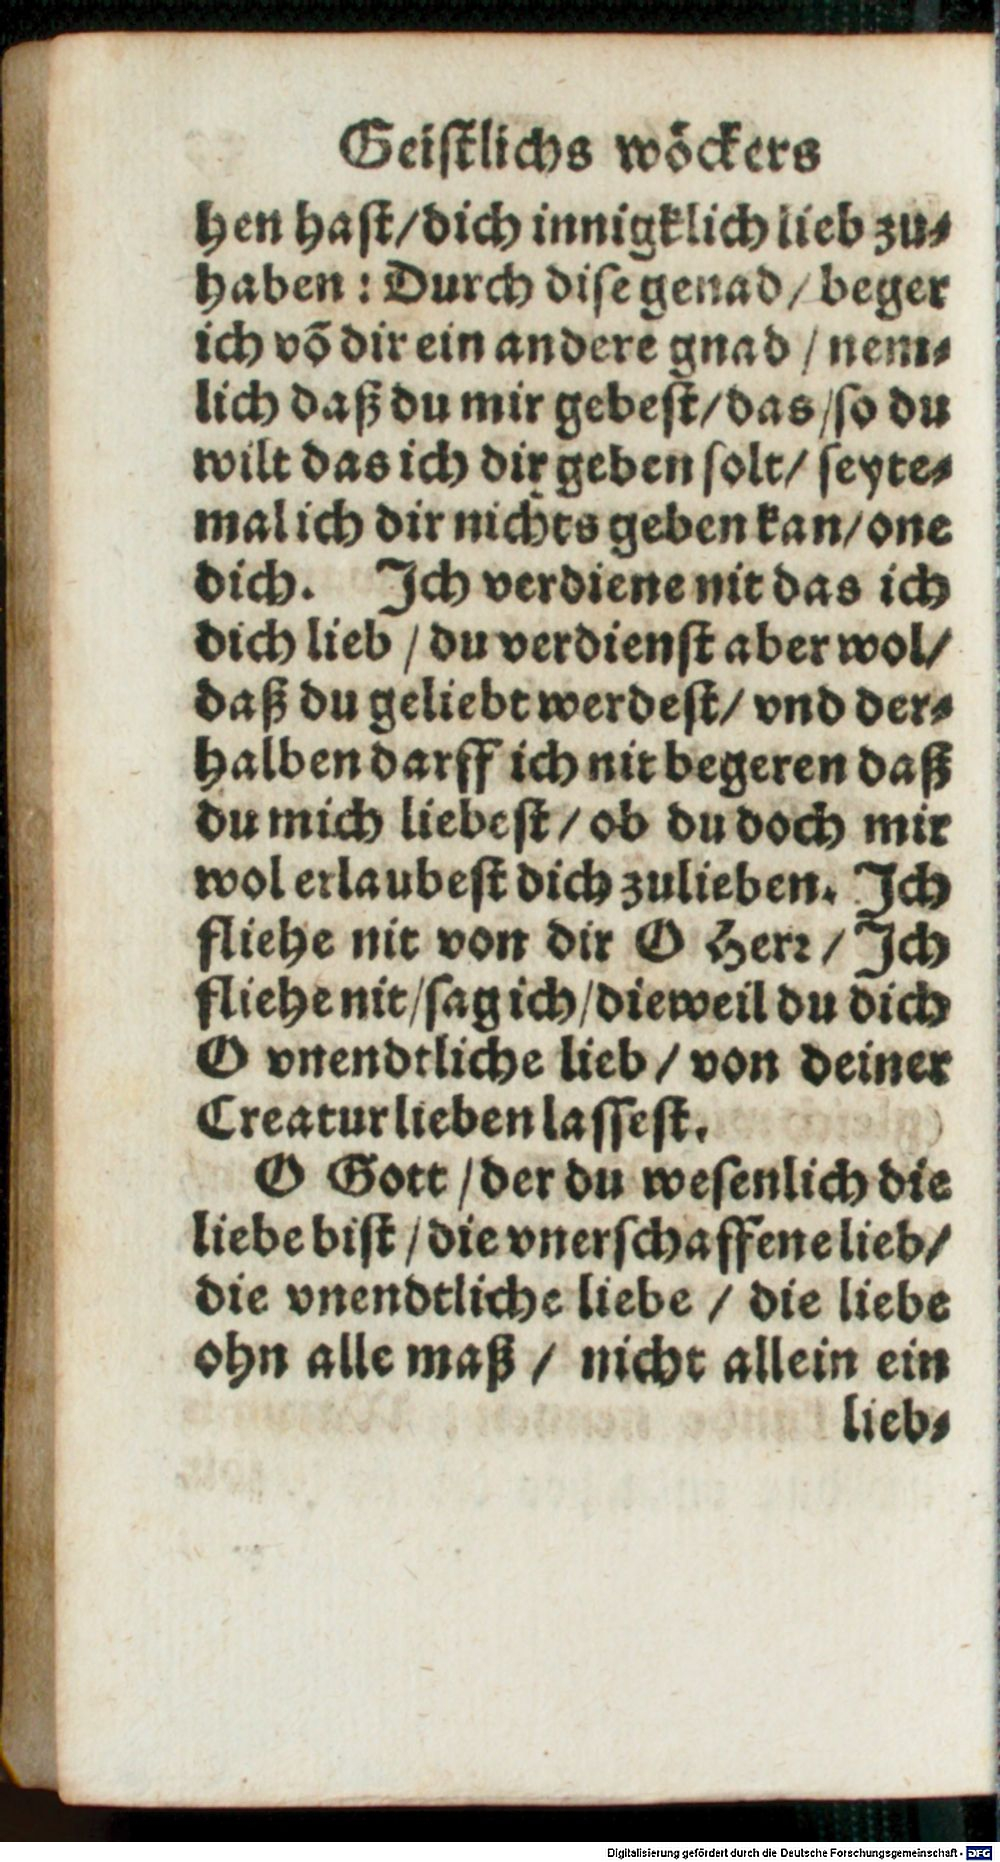 Geistlichs wöckers
hen hast/dich innigklich lieb zu⸗
haben: Durch dise genad/beger
ich võ dir ein andere gnad/nem⸗
lich daß du mir gebest/das/so du
wilt das ich dir geben solt/seyte⸗
mal ich dir nichts geben kan/one
dich. Ich verdiene nit das ich
dich lieb/du verdienst aber wol/
daß du geliebt werdest/vnd der⸗
halben darff ich nit begeren daß
du mich liebest/ob du doch mir
wol erlaubest dich zulieben. Ich
fliehe nit von dir O Herr/Ich
fliehe nit/sag ich/dieweil du dich
O vnendtliche lieb/von deiner
Creatur lieben lassest.
O Gott/der du wesenlich die
liebe bist/die vnerschaffene lieb/
die vnendtliche liebe/die liebe
ohn alle maß/nicht allein ein
lieb⸗
Digitalisierung gefördert durch die Deutsche Forschungsgemeinschaft - DFG